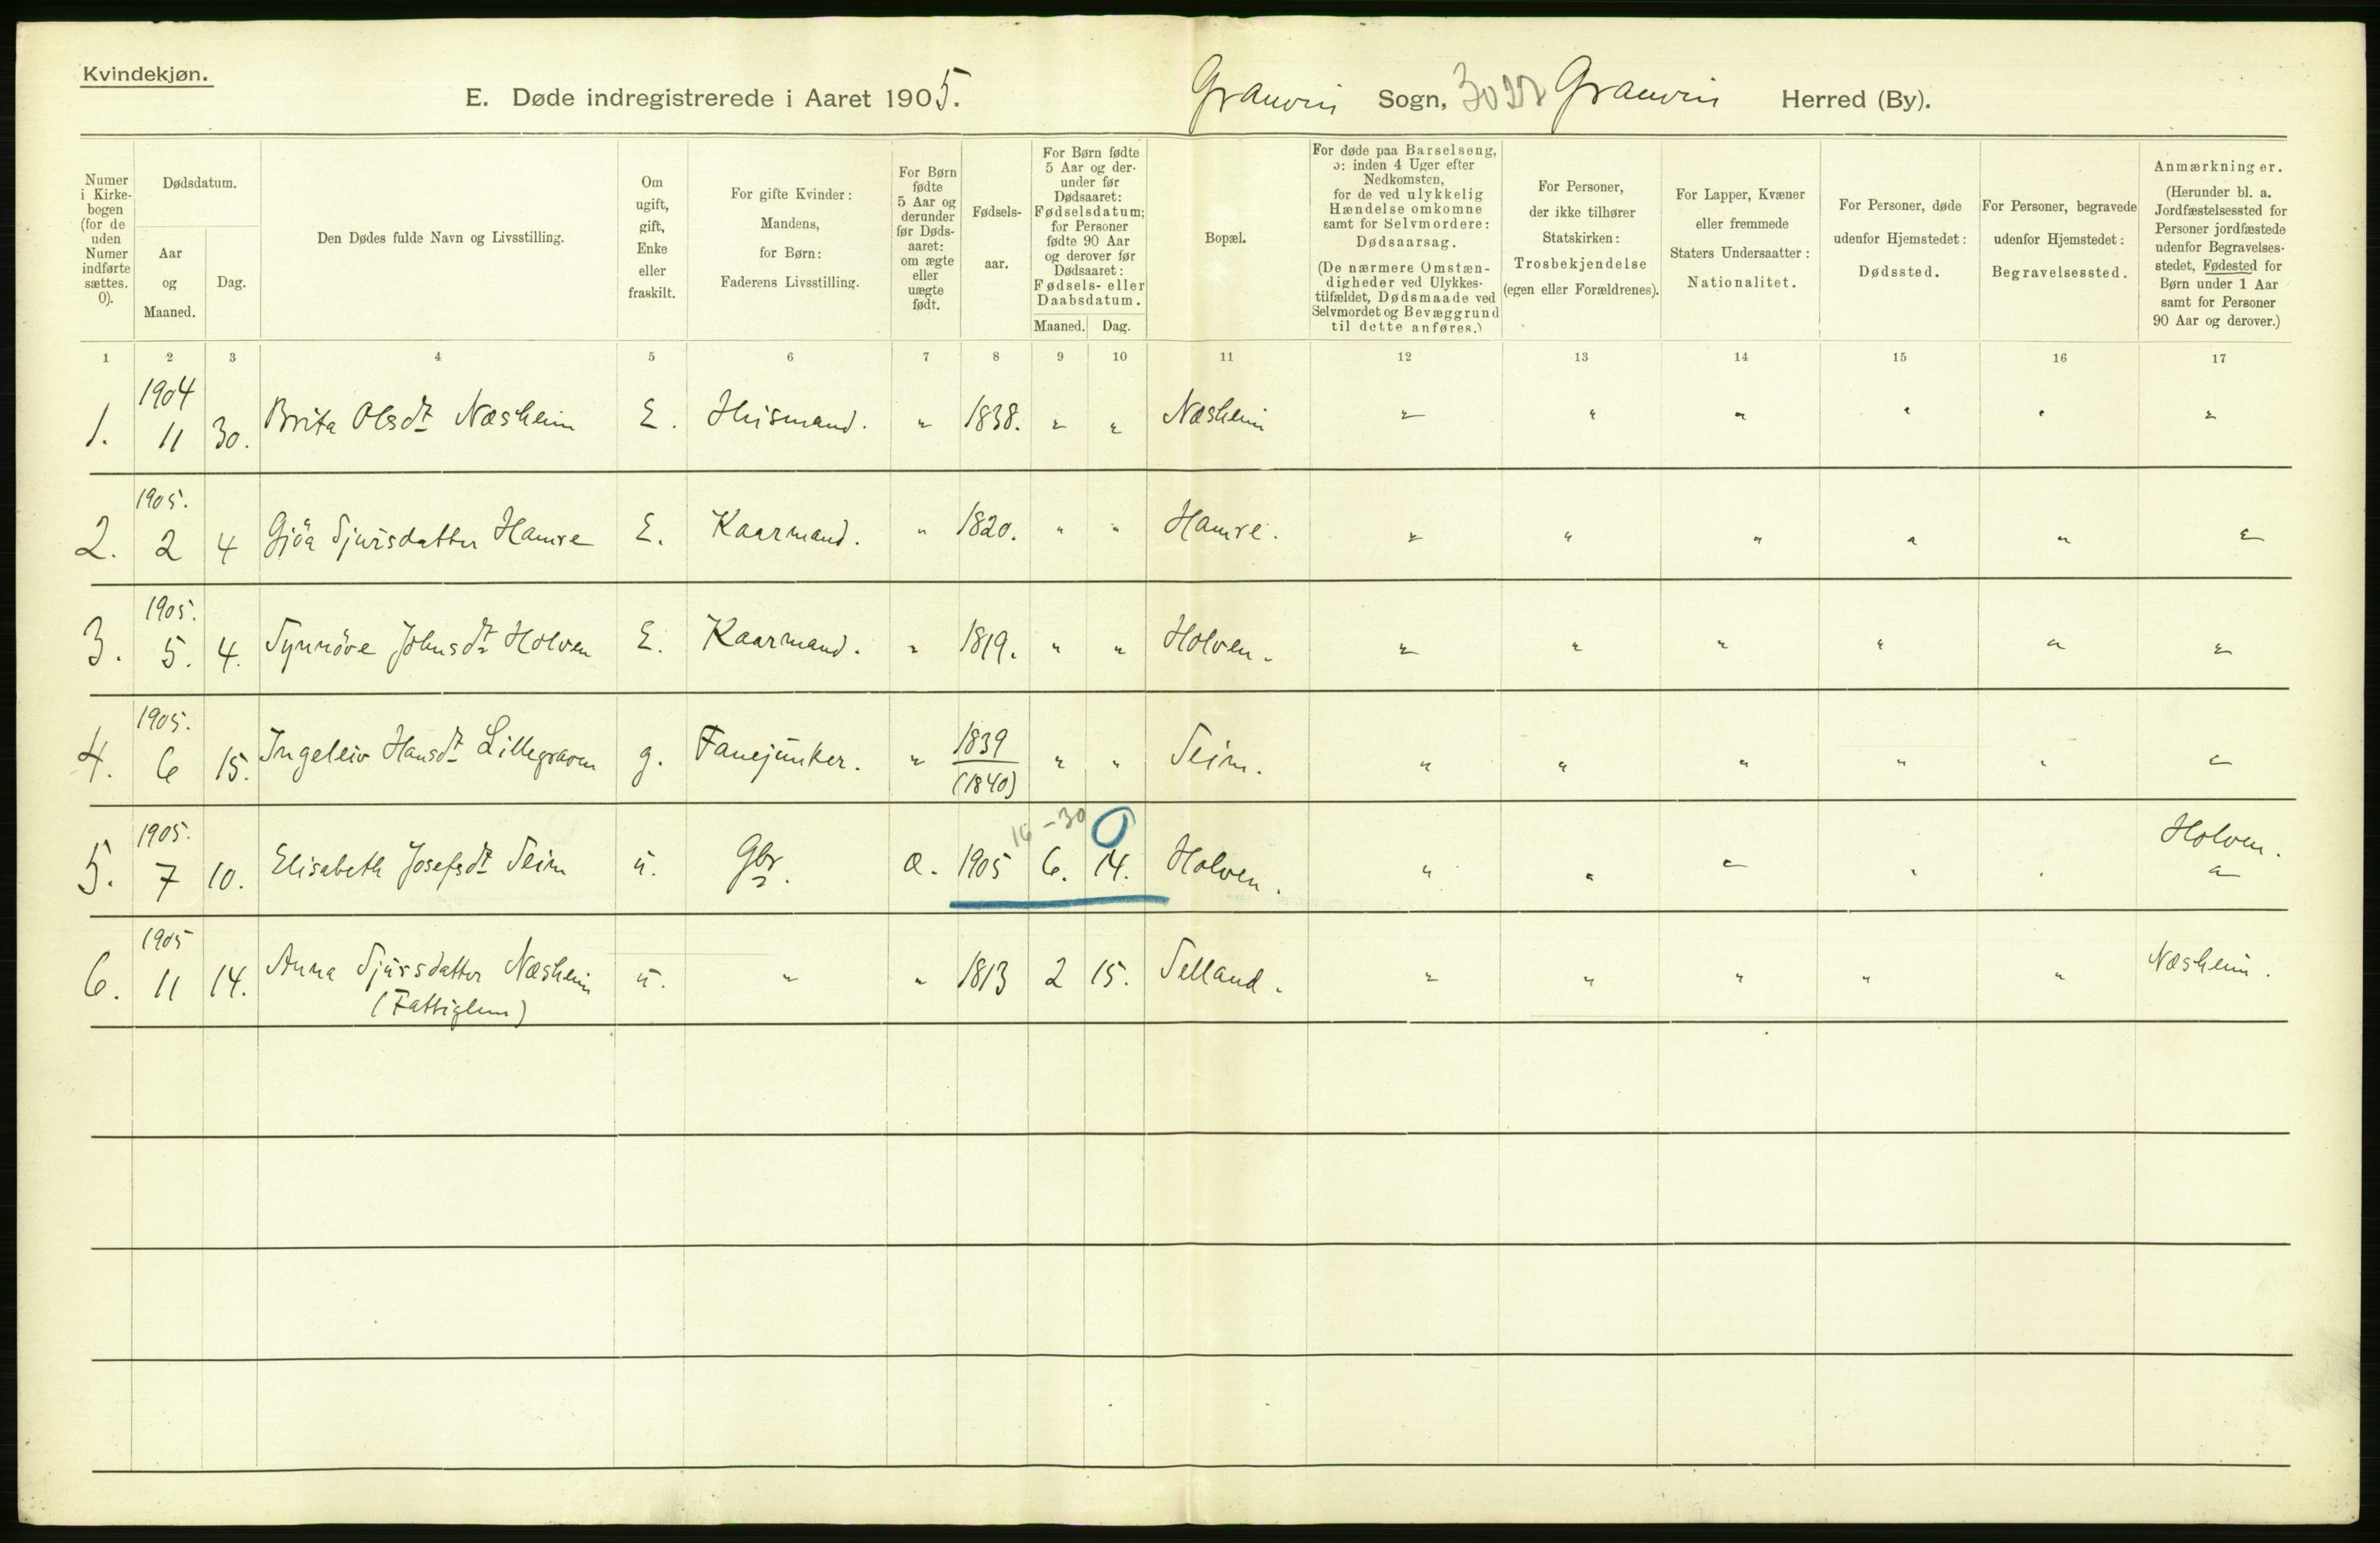 Kvindekjøn.
E. Døde indregistrerede i Aaret 1905. Granvin Sogn, Granvin Herred (By).
Numer i Kirkebogen (for de uden Numer indførte sættes. 0).
Dødsdatum.
Aar og Maaned.
Dag.
Den Dødes fulde Navn og Livsstilling.
Om ugift, gift, Enke eller fraskilt.
For gifte Kvinder: Mandens, for Børn: Faderens Livsstilling.
For Børn fødte 5 Aar og derunder før Dødsaaret: om ægte eller uægte født.
Fødselsaar.
For Børn fødte 5 Aar og derunder før Dødsaaret: Fødselsdatum; for Personer fødte 90 Aar og derover før Dødsaaret: Fødsels- eller Daabsdatum.
Maaned. Dag.
Bopæl.
For døde paa Barselseng, ɔ: inden 4 Uger efter Nedkomsten, for de ved ulykkelig Hændelse omkomne samt for Selvmordere: Dødsaarsag. (De nærmere Omstændigheder ved Ulykkestilfældet, Dødsmaade ved Selvmordet og Bevæggrund til dette anføres.)
For Personer, der ikke tilhører Statskirken: Trosbekjendelse (egen eller Forældrenes).
For Lapper, Kvæner eller fremmede Staters Undersaatter: Nationalitet.
For Personer, døde udenfor Hjemstedet: Dødssted.
For Personer, begravede udenfor Hjemstedet: Begravelsessted.
Anmærkninger. (Herunder bl. a. Jordfæstelsessted for Personer jordfæstede udenfor Begravelsesstedet, Fødested for Børn under 1 Aar samt for Personer 90 Aar og derover.)
1 2 3 4 5 6 7 8 9 10 11 12 13 14 15 16 17
1. 1904 11 30. Brita Olsdt Næsheim E. Husmand. " 1838. " " Næsheim " " " " " "
2. 1905. 2 4 Gjöa Sjursdatter Hamre E. Kaarmand. " 1820. " " Hamre. " " " " " "
3. 1905. 5. 4. Synnöve Johnsdt Holven E. Kaarmand. " 1819. " " Holven. " " " " " "
4. 1905. 6 15. Ingeleiv Hansdt Lillegraven g. Fanejunker. " 1839 (1840) " " Seim. " " " " " "
5. 1905. 7 10. Elisabeth Josefsdt Seim u. Gbr. a. 1905 16-30 6. 14. 0 Holven. " " " " " Holven. "
6. 1905 11 14. Anna Sjursdatter Næsheim (Fattiglem) u. " " 1813 2 15. Selland. " " " " " Næsheim.